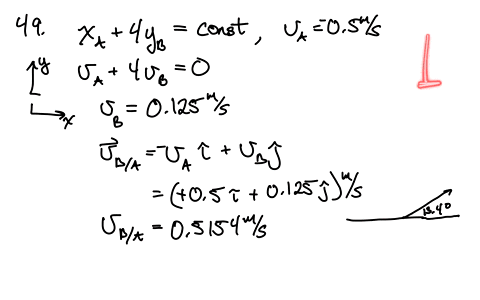 49. x_A + 4y_B = const, v_A = -0.5 m/s
y
v_A + 4v_B = 0
x
v_B = 0.125 m/s
v⃗_B/A = -v_A î + v_B ĵ
= (+0.5 î + 0.125 ĵ) m/s
v_B/A = 0.5154 m/s